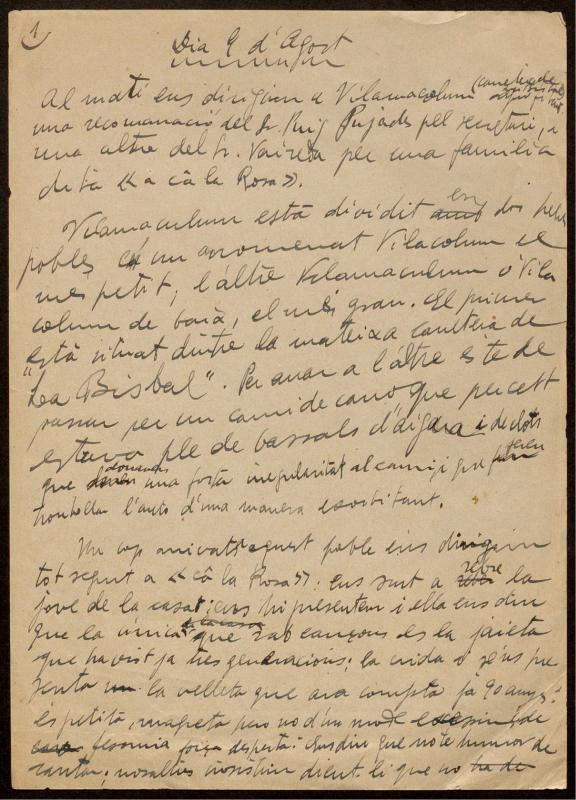 1
Dia 9 d'Agost
Al matí ens dirigim a Vilamacolum (carretera de
una recomanació del Sr. Puig Pujades pel secretari, i
una altre del Sr. Vayreda per una familia
dita «a câ la Rosa».
Vilamaculum està dividit amb en dos petits
pobles un anomenat Vilacolum el
més petit; l'àltre Vilamaculum o Vila
colum de baix, el més gran. El primer
"està situat dintre la mateixa carretera de
La Bisbal". Per anar a l'àltre es te de
passar per un cami de carro que per cert
estava ple de bassals d'aigua i de clots
que donaven una forta irregularitat al cami i que feien
trontollar l'auto d'una manera exorbitant.
Un cop arrivats aquest poble ens dirigim
tot seguit a «câ la Rosa»: ens surt a rebre la
jove de la casa; ens hi presentem i ella ens diu
que la única de la casa que sab cançons es la jaieta
que ha vist ja tres generacions; la crida i se'ns pre
senta la velleta que ara compta ja 90 anys:
és petita, magreta pero no d'un mode i de
fesomia força desperta. Ens diu que no te humor de
cantar; nosaltres insistim dient-li que no ha de